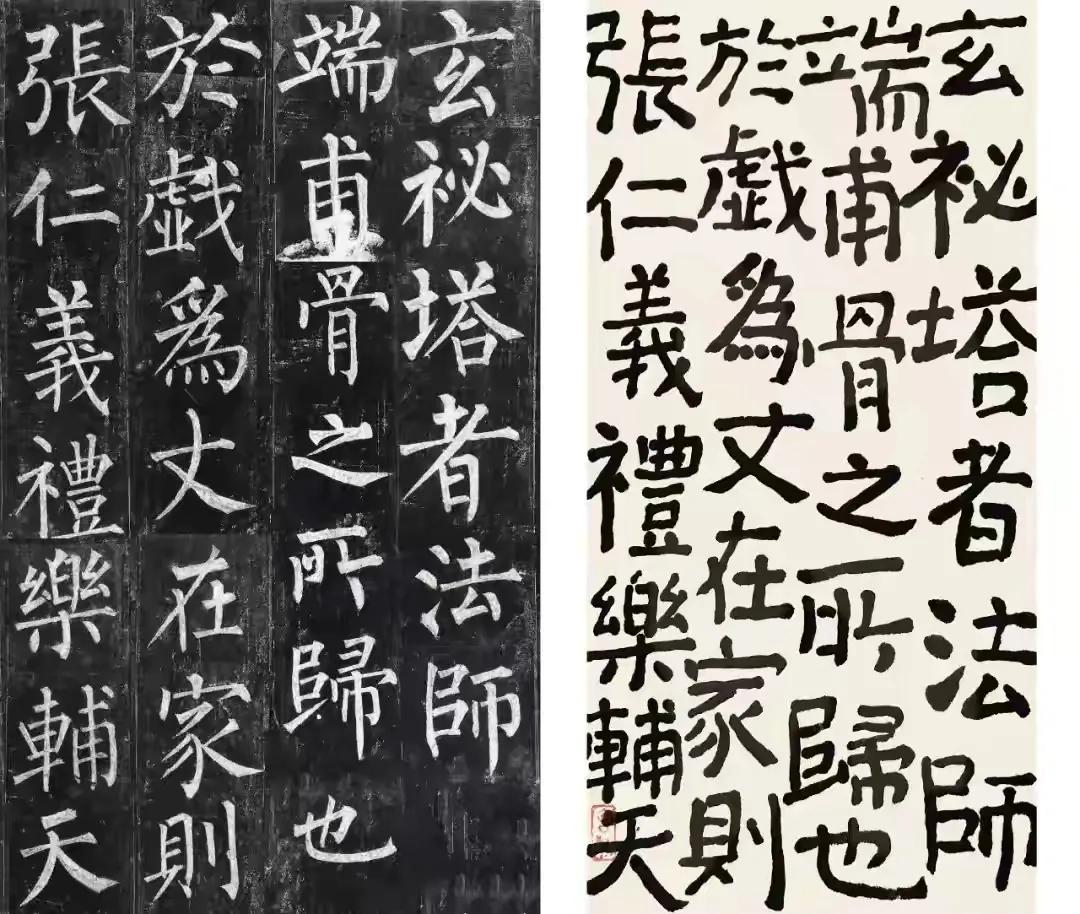 玄祕塔者法師
端甫骨之所歸也
於戲為丈在家則
張仁義禮樂輔天
玄祕塔者法師
端甫骨之所歸也
於戲為丈在家則
張仁義禮樂輔天